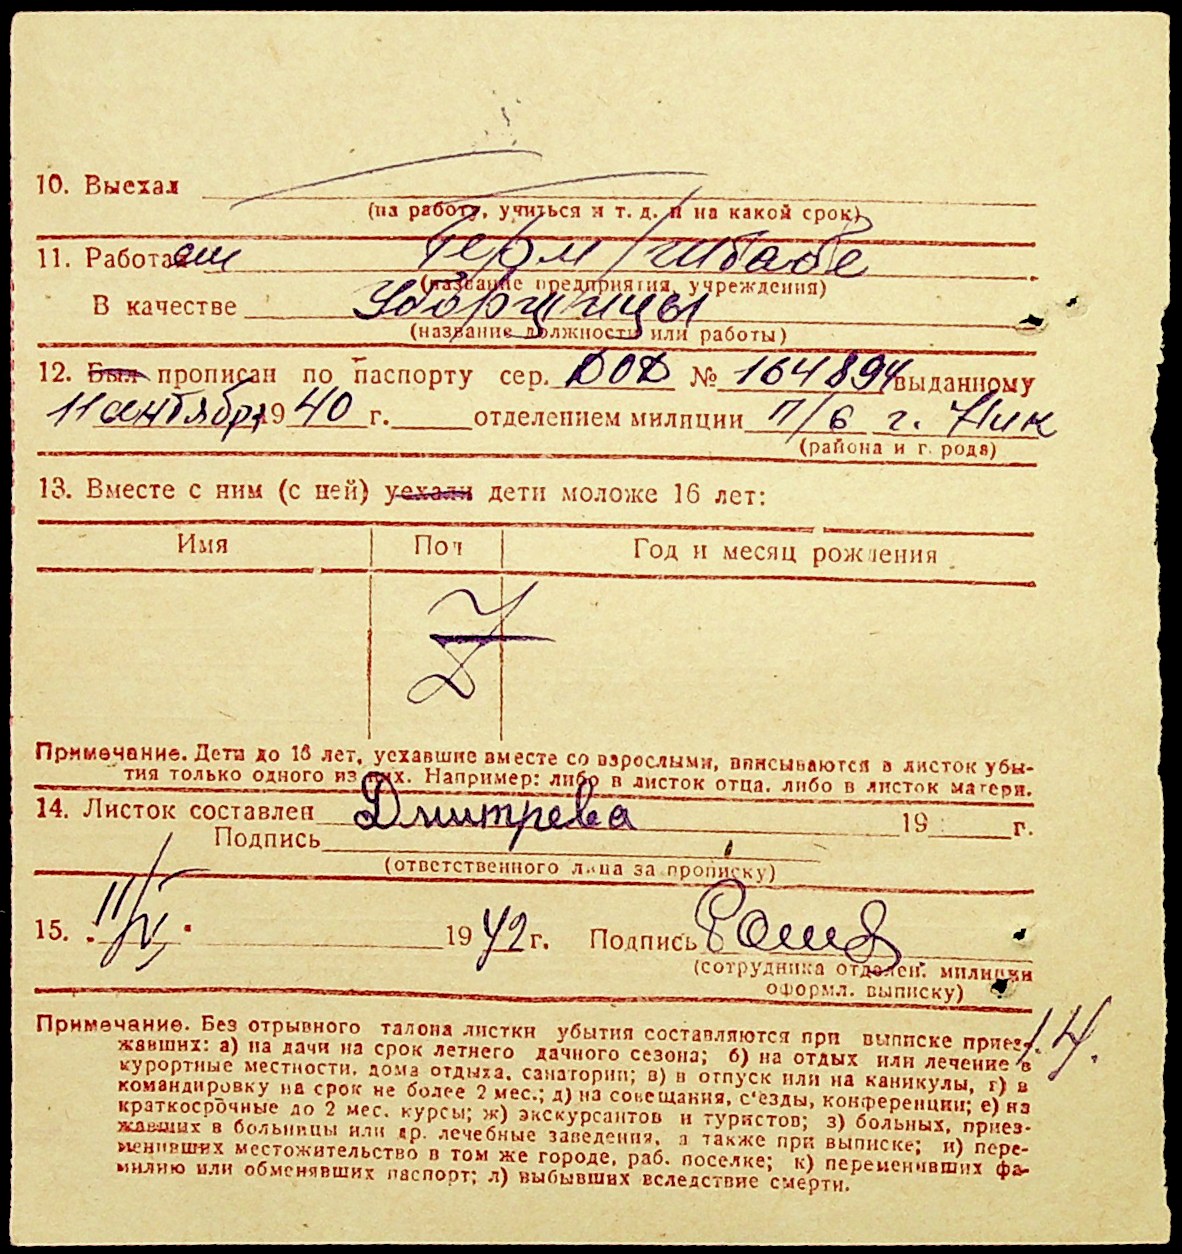 10. Выехал
(на работу, учиться и т. д. и на какой срок)
11. Работает Герм штабе
(название предприятия, учреждения)
В качестве Уборщицы
(название должности или работы)
12. Был прописан по паспорту сер. ДОД № 164894 выданному
11 сентября 1940 г. отделением милиции п/б г. Ник
(района и г. рода)
13. Вместе с ним (с ней) уехали дети моложе 16 лет:
Имя Пол Год и месяц рождения
Z
Примечание. Дети до 16 лет, уехавшие вместе со взрослыми, вписываются в листок убы-
тия только одного из них. Например: либо в листок отца, либо в листок матери.
14. Листок составлен Дмитрева 19 г.
Подпись
(ответственного лица за прописку)
15. 11/V 1942 г. Подпись
(сотрудника отделен. милиции
оформл. выписку)
Примечание. Без отрывного талона листки убытия составляются при выписке приез-
жавших: а) на дачи на срок летнего дачного сезона; б) на отдых или лечение в
курортные местности, дома отдыха, санатории; в) в отпуск или на каникулы, г) в
командировку на срок не более 2 мес.; д) на совещания, с'езды, конференции; е) на
краткосрочные до 2 мес. курсы; ж) экскурсантов и туристов; з) больных, приез-
жавших в больницы или др. лечебные заведения, а также при выписке; и) пере-
менивших местожительство в том же городе, раб. поселке; к) переменивших фа-
милию или обменявших паспорт; л) выбывших вследствие смерти.